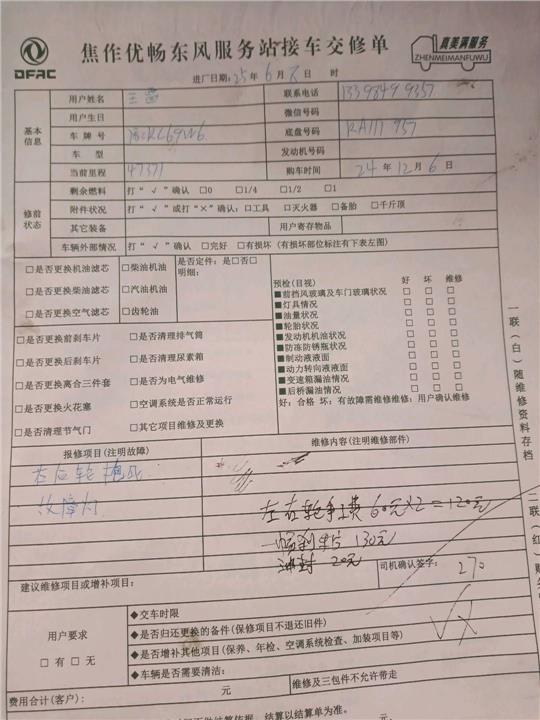 DFAC
焦作优畅东风服务站接车交修单
真美满服务
ZHENMEIMANFUWU
进厂日期:25年6月8日 时
基本信息
用户姓名 王 联系电话 13398499357
用户生日 微信号码
车牌号 底盘号码 RA111957
车型 发动机号码
当前里程 47371 购车时间 24年12月6日
修前状态
剩余燃料 打“√”确认 □0 □1/4 □1/2 □1
附件状况 打“√”或打“×”确认:□工具 □灭火器 □备胎 □千斤顶
其它装备 用户寄存物品
车辆外部情况 打“√”确认 □完好 □有损坏(有损坏部位标注有下表左图)
□是否更换机油滤芯 □柴油机油 是否定件:是□否□
明细:
□是否更换柴油滤芯 □汽油机油
□是否更换空气滤芯 □齿轮油
□是否更换前刹车片 □是否清理排气筒
□是否更换后刹车片 □是否清理尿素箱
□是否更换离合三件套 □是否为电气维修
□是否更换火花塞 □空调系统是否正常运行
□是否清理节气门 □其它项目维修及更换
预检(目视) 好 坏 维修
■前挡风玻璃及车门玻璃状况 □ □ □
■灯具情况 □ □ □
■油量状况 □ □ □
■轮胎状况 □ □ □
■发动机机油状况 □ □ □
■防冻防锈瓶状况 □ □ □
■制动液液面 □ □ □
■动力转向液液面 □ □ □
■变速箱漏油情况 □ □ □
■后桥漏油情况 □ □ □
好:合格 坏:有故障需维修维修:用户确认维修
报修项目(注明故障) 维修内容(注明维修部件)
右后轮抱死
故障灯
左右轮 60元×2=120元
刹车片 130元
油封 20元
司机确认签字: 270
建议维修项目或增补项目:
用户要求
□有 □无
◆交车时限
◆是否归还更换的备件(保修项目不退还旧件)
◆是否增补其他项目(保养、年检、空调系统检查、加装项目等)
◆车辆是否需要清洁:
费用合计(客户): 元 维修及三包件不允许带走
结算依据,结算以结算单为准。
元
一联(白)随维修资料存档
二联(红)